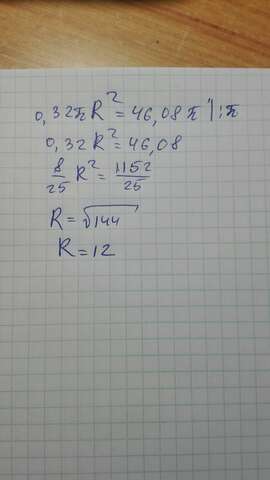 0,32πR² = 46,08π |:π
0,32R² = 46,08
8/25 R² = 1152/25
R = √144
R = 12